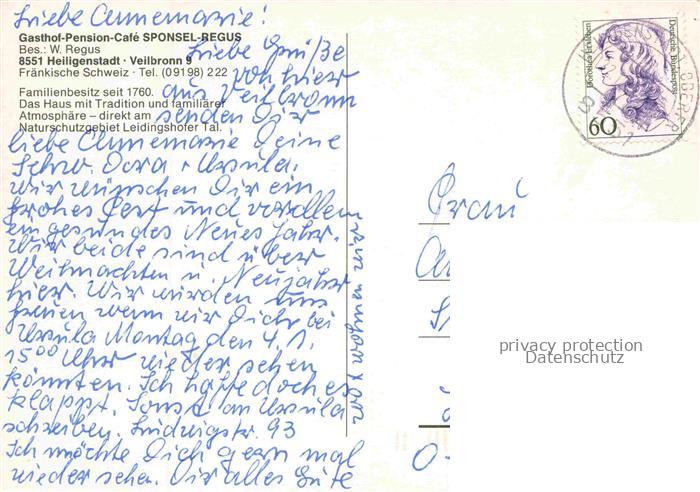 Liebe Annemarie!
Gasthof-Pension-Café SPONSEL-REGUS
Bes.: W. Regus
8551 Heiligenstadt · Veilbronn 9
Fränkische Schweiz · Tel. (09198) 222
Familienbesitz seit 1760.
Das Haus mit Tradition und familiärer
Atmosphäre – direkt am
Naturschutzgebiet Leidingshofer Tal.
Liebe Grüße
von hier
aus Veilbronn
senden Dir
liebe Annemarie Deine
Schw. Dora + Ursula.
Wir wünschen Dir ein
frohes Fest und vor allem
ein gesundes Neues Jahr.
Wir beide sind über
Weihnachten u. Neujahr
hier. Wir würden uns
freuen wenn wir Dich bei
Ursula Montag den 4. 1.
15 00 Uhr wieder sehen
könnten. Ich hoffe doch es
klappt. Sonst an Ursula
schreiben. Ludwigstr. 93
Ich möchte Dich gern mal
wieder sehen. Dir alles Gute
Deutsche Bundespost
60
Frau
privacy protection
Datenschutz